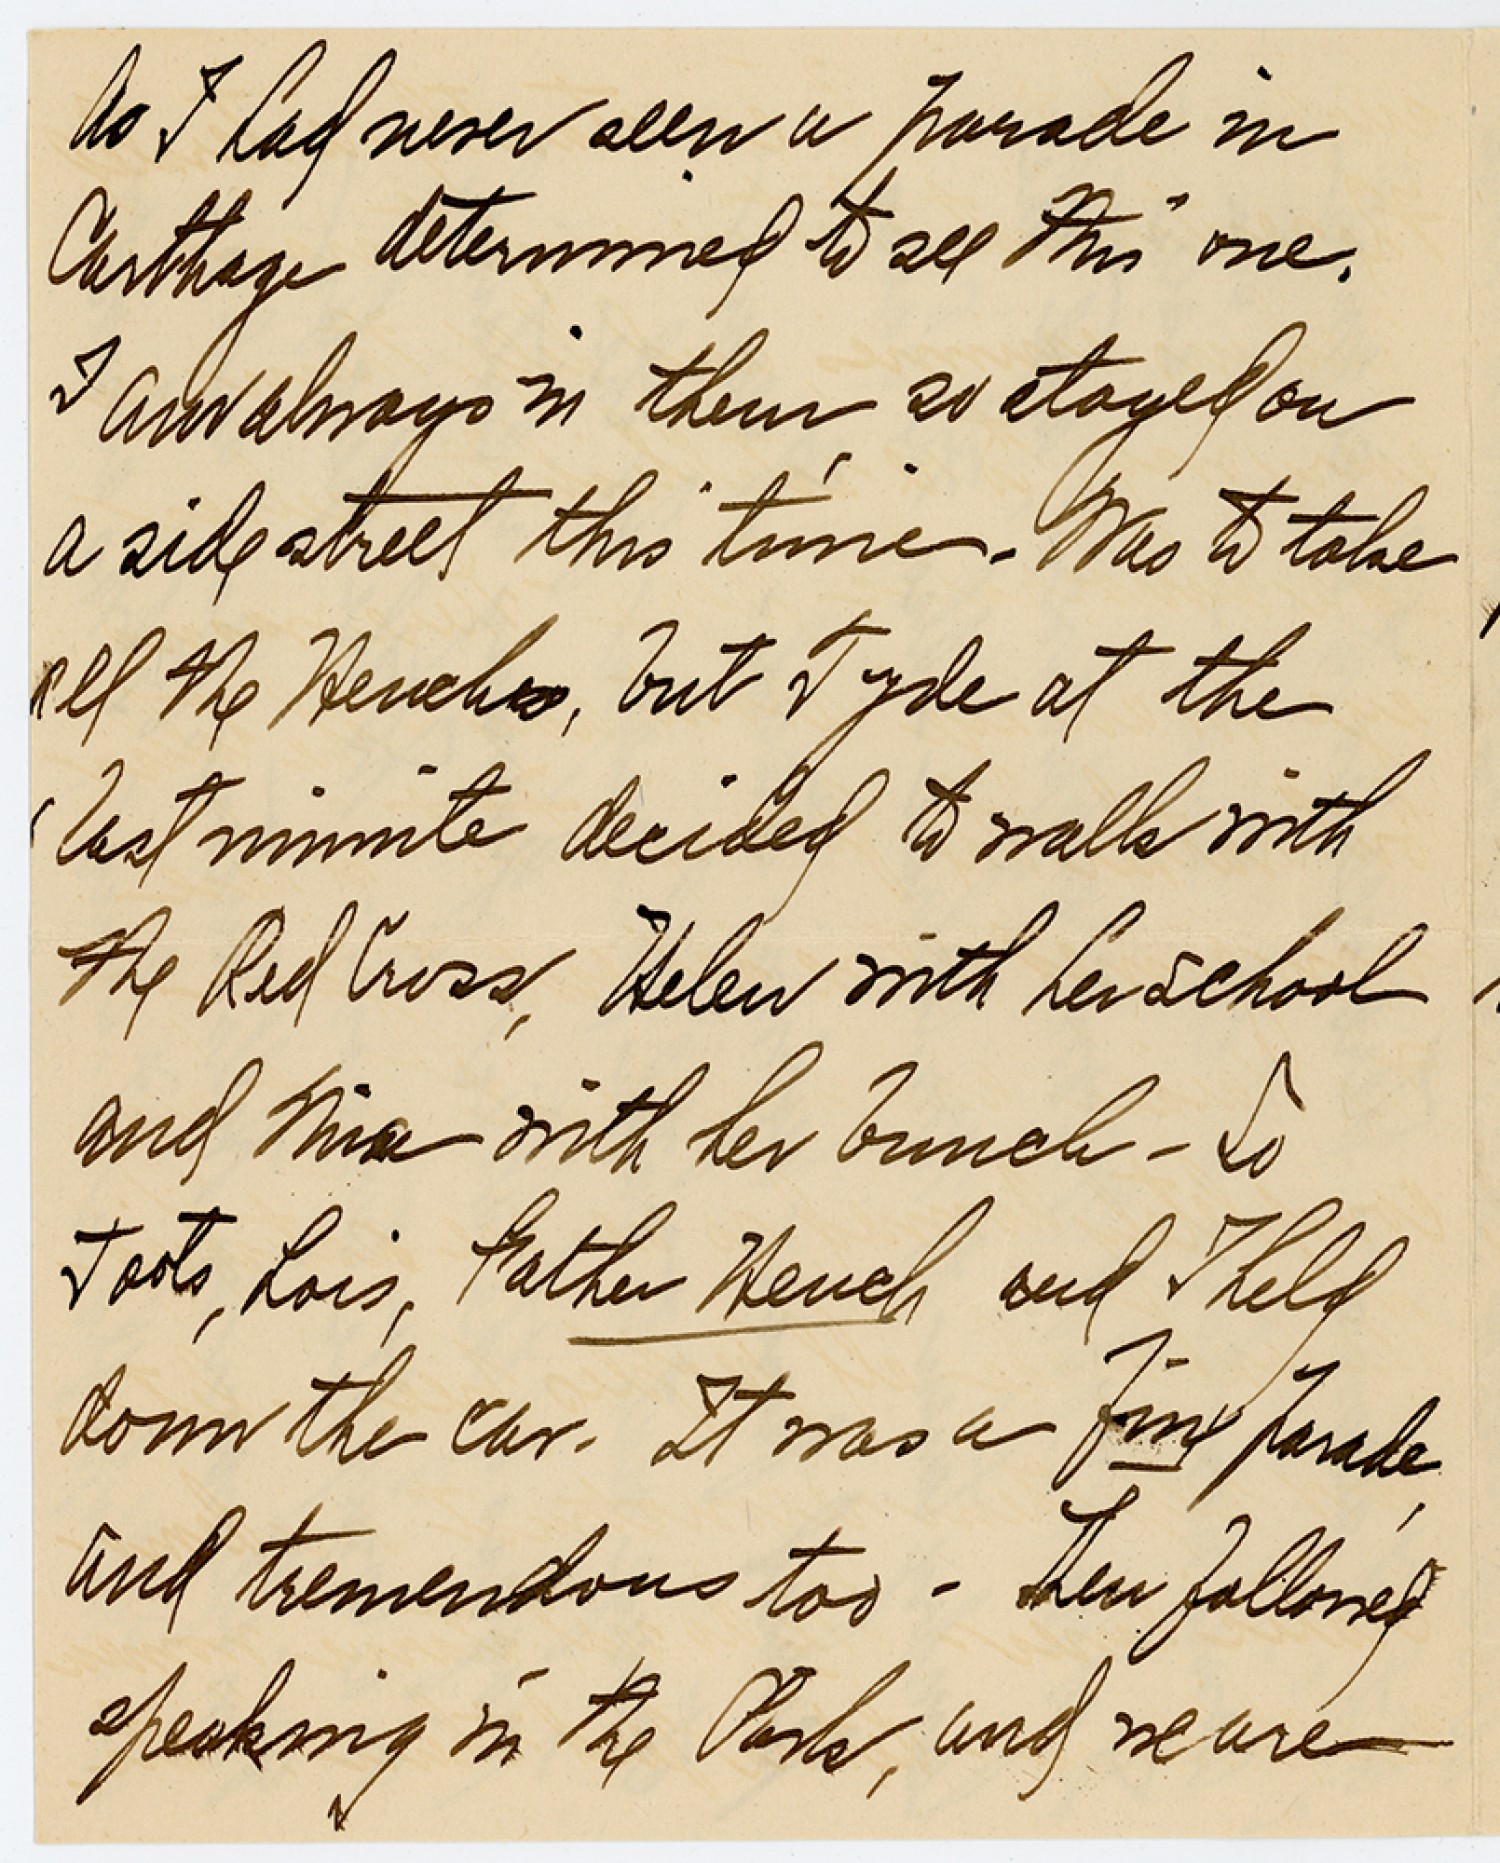 As I had never seen a parade in
Carthage determined to see this one.
I am always in them, so stayed on
a side street this time. - Was to take
all the Henchs, but Tyde at the
last minute decided to walk with
the Red Cross, Helen with her school
and Nina with her bunch - So
Toots, Lois, Father Hench and I held
down the car. It was a fine parade,
and tremendous too - then followed
speaking in the Park, and we are